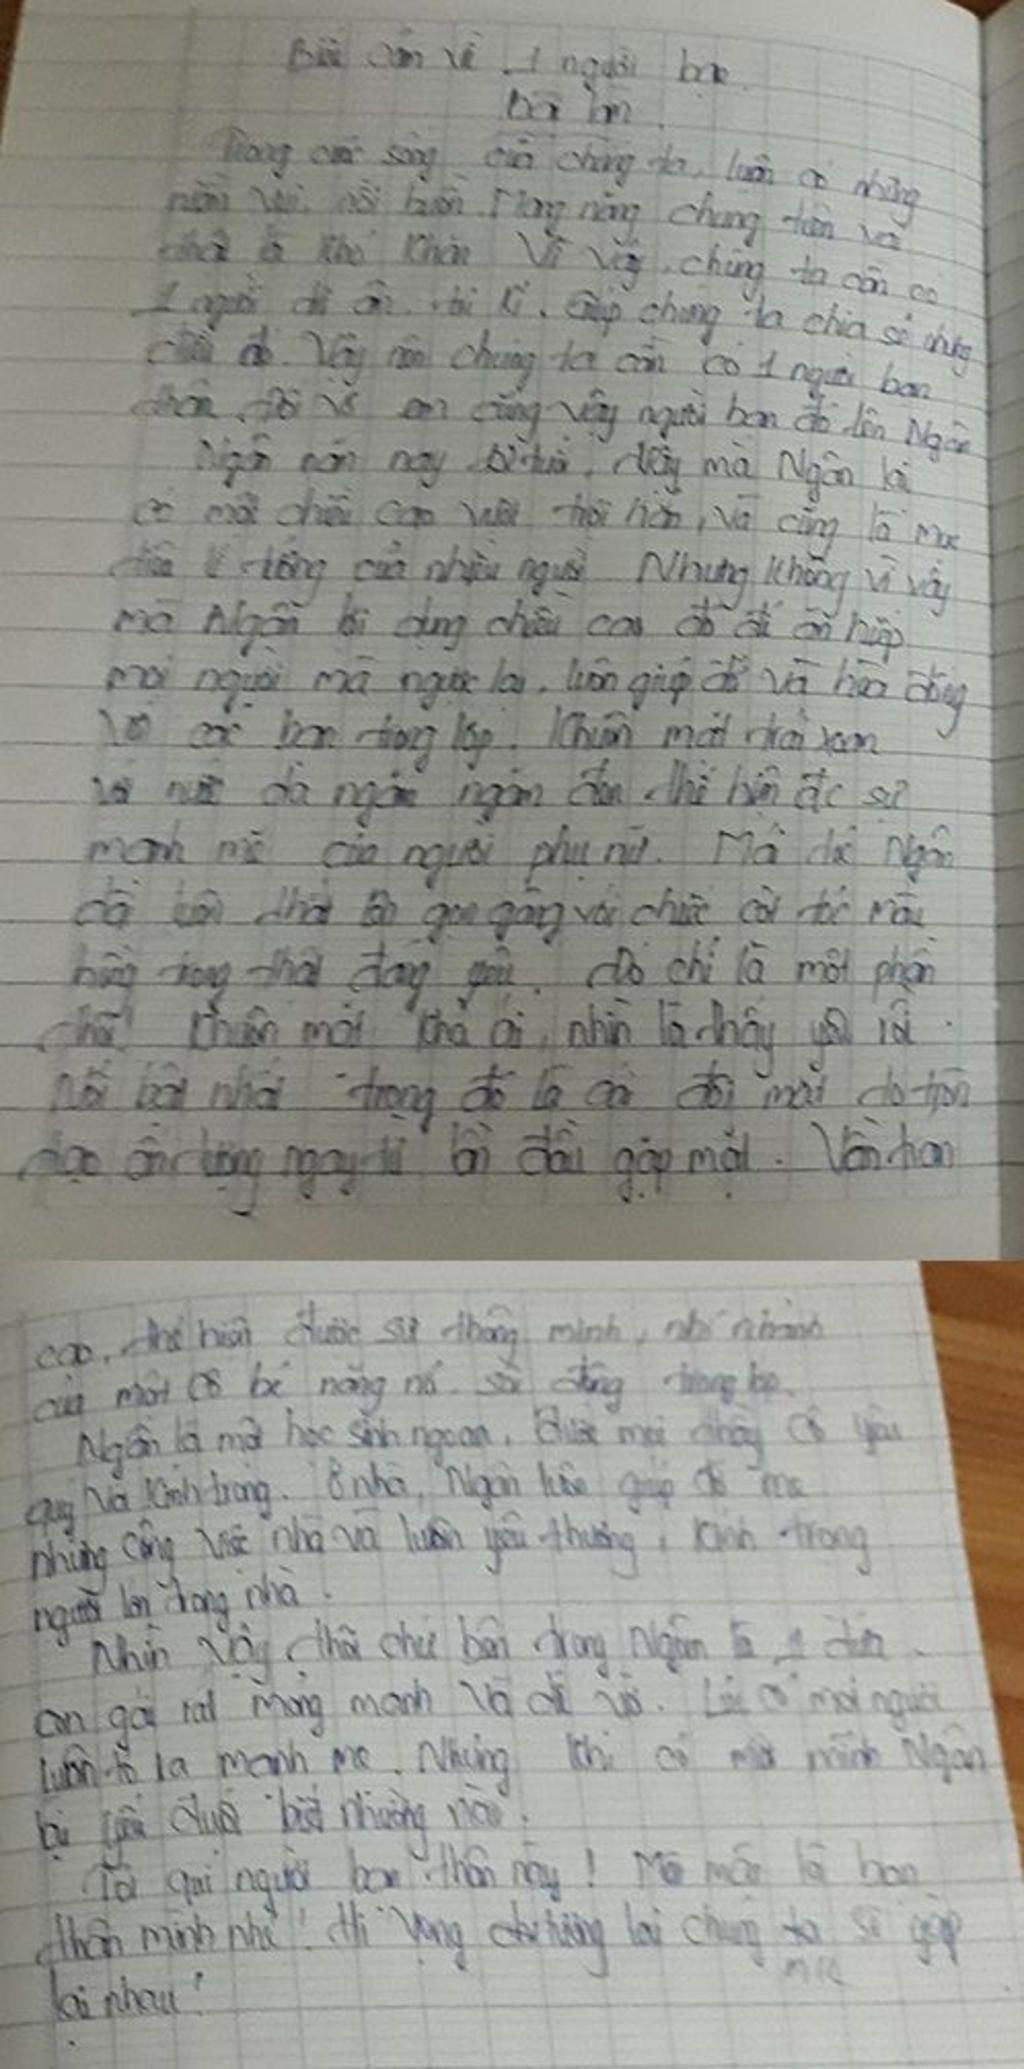 Biểu cảm về 1 người bạn.
Bài làm
Trong cuộc sống của chúng ta, luôn có những
niềm vui, nỗi buồn. chúng
khó khăn Vì vậy, chúng ta cần có
1 người tri kỉ, giúp chúng ta chia sẻ những
điều đó. Vậy nên chúng ta cần có 1 người bạn
thân. Đối với em cũng vậy người bạn đó tên Ngân
Ngân năm nay tuổi, mà Ngân lại
có một chiều cao vượt trội hơn, và cũng là mục
của nhiều người Nhưng không vì vậy
mà Ngân lợi dụng chiều cao đó để ăn hiếp
mọi người mà ngược lại, luôn giúp đỡ và hòa đồng
với các bạn trong lớp. Khuôn mặt trái xoan
với nước da ngăm ngăm đen thể hiện sự
mạnh mẽ của người phụ nữ. Ngân
gọn gàng với chiếc cột tóc màu
hồng trong thật đáng yêu. Đó chỉ là một phần
thôi khuôn mặt khả ái, nhìn là thấy yêu rồi.
Nổi bật nhất trong đó là đôi mắt to tròn
ấn tượng ngay từ lần đầu gặp mặt. Vần trán
cao, thể hiện được sự thông minh, nhí nhảnh
của một cô bé năng nổ, sôi động
Ngân là một học sinh ngoan, được mọi thầy cô yêu
quý và kính trọng. Ở nhà, Ngân luôn giúp đỡ mẹ
những công việc nhà và luôn yêu thương, kính trọng
người lớn trong nhà.
Nhìn vậy thôi chứ bên trong Ngân là 1 đứa
con gái rất mỏng manh và dễ vỡ. Lúc có mọi người
luôn tỏ ra mạnh mẽ. Nhưng khi có một mình Ngân
lại yếu đuối biết nhường nào.
Tôi quí người bạn thân này! Mãi mãi là bạn
thân mình nhé! Hi vọng tương lai chúng ta sẽ gặp
lại nhau!